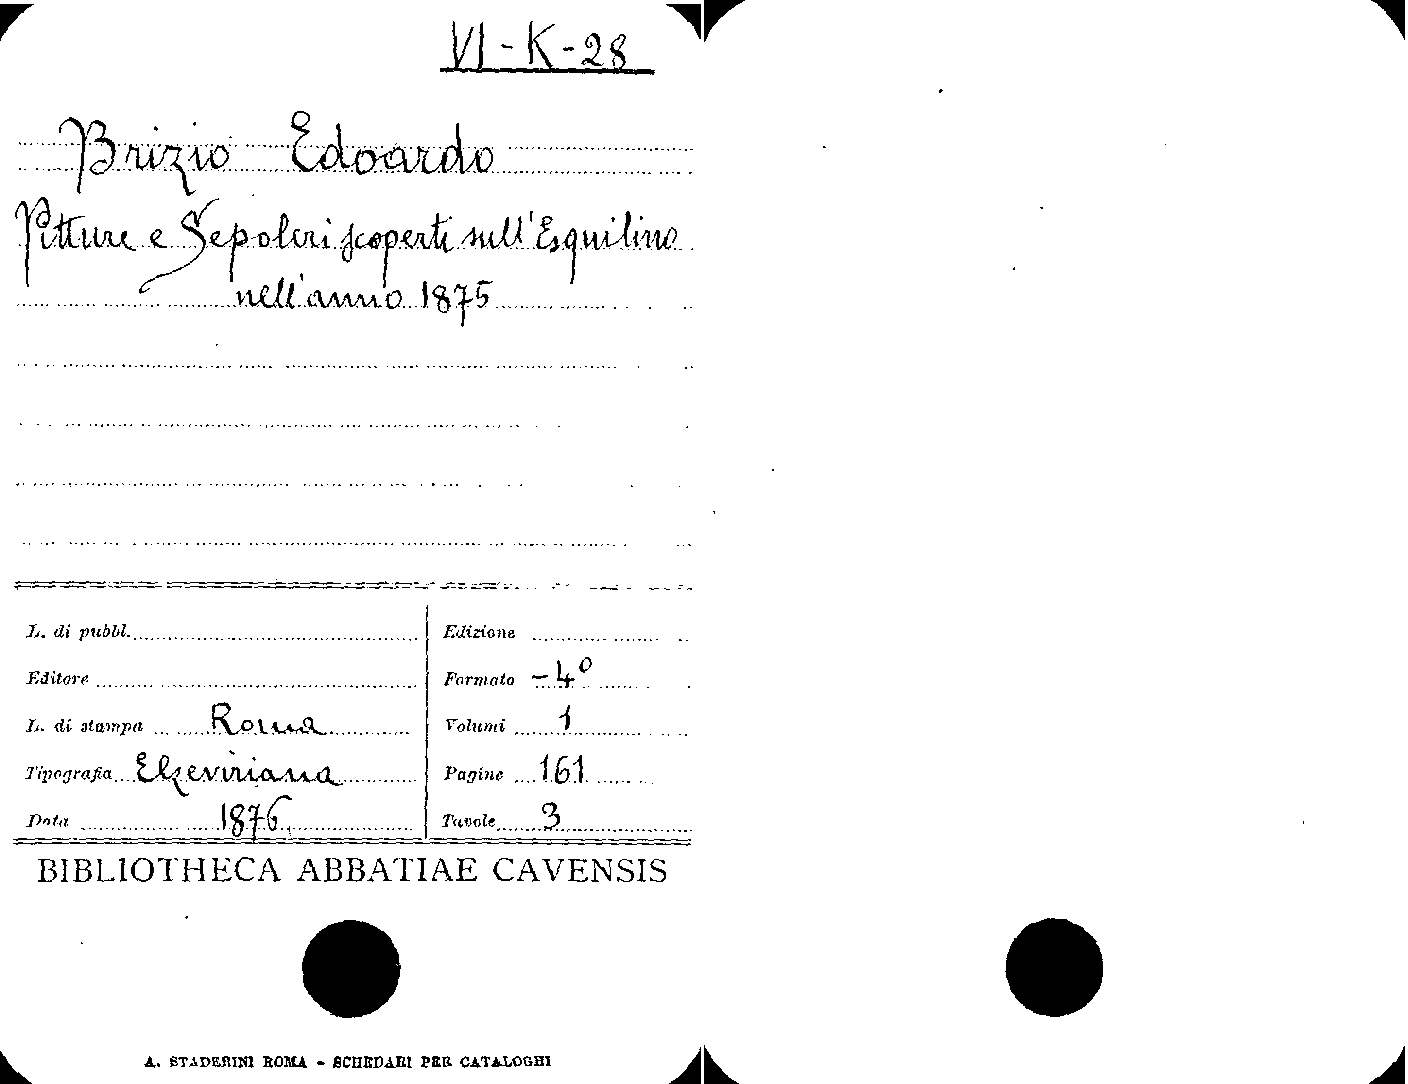 VI-K-28
Brizio Edoardo
Pitture e Sepolcri scoperti sull'Esquilino
nell'anno 1875
L. di pubbl.
Editore
L. di stampa Roma
Tipografia Elzeviriana
Data 1876
Edizione
Formato -4º
Volumi 1
Pagine 161
Tavole 3
BIBLIOTHECA ABBATIAE CAVENSIS
A. STADERINI ROMA - SCHEDARI PER CATALOGHI